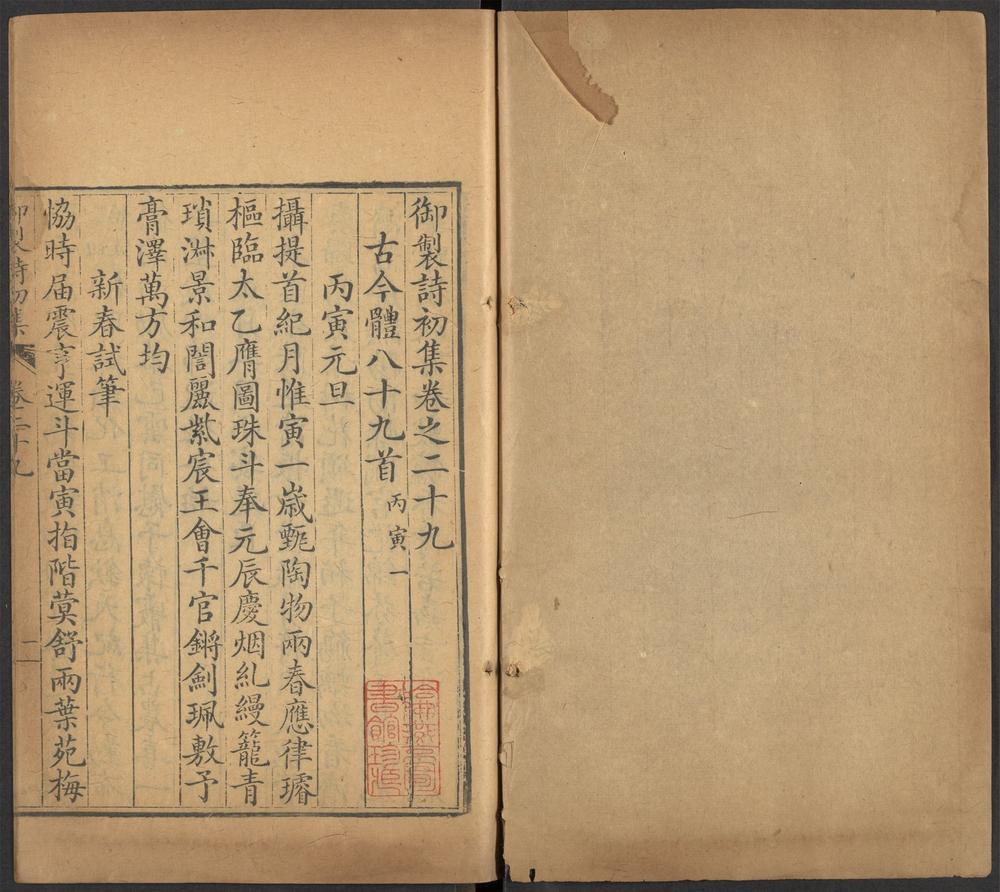 御製詩初集卷之二十九
古今體八十九首 丙寅一
丙寅元旦
攝提首紀月惟寅一歲甄陶物兩春應律璿
樞臨太乙膺圖珠斗奉元辰慶烟糺縵籠青
瑣淋景和誾麗紫宸王會千官鏘劍珮敷予
膏澤萬方均
新春試筆
協時届震亨運斗當寅指階蓂舒兩葉苑梅
御製詩初集 卷二十九 一
哈佛燕京圖書館珍藏